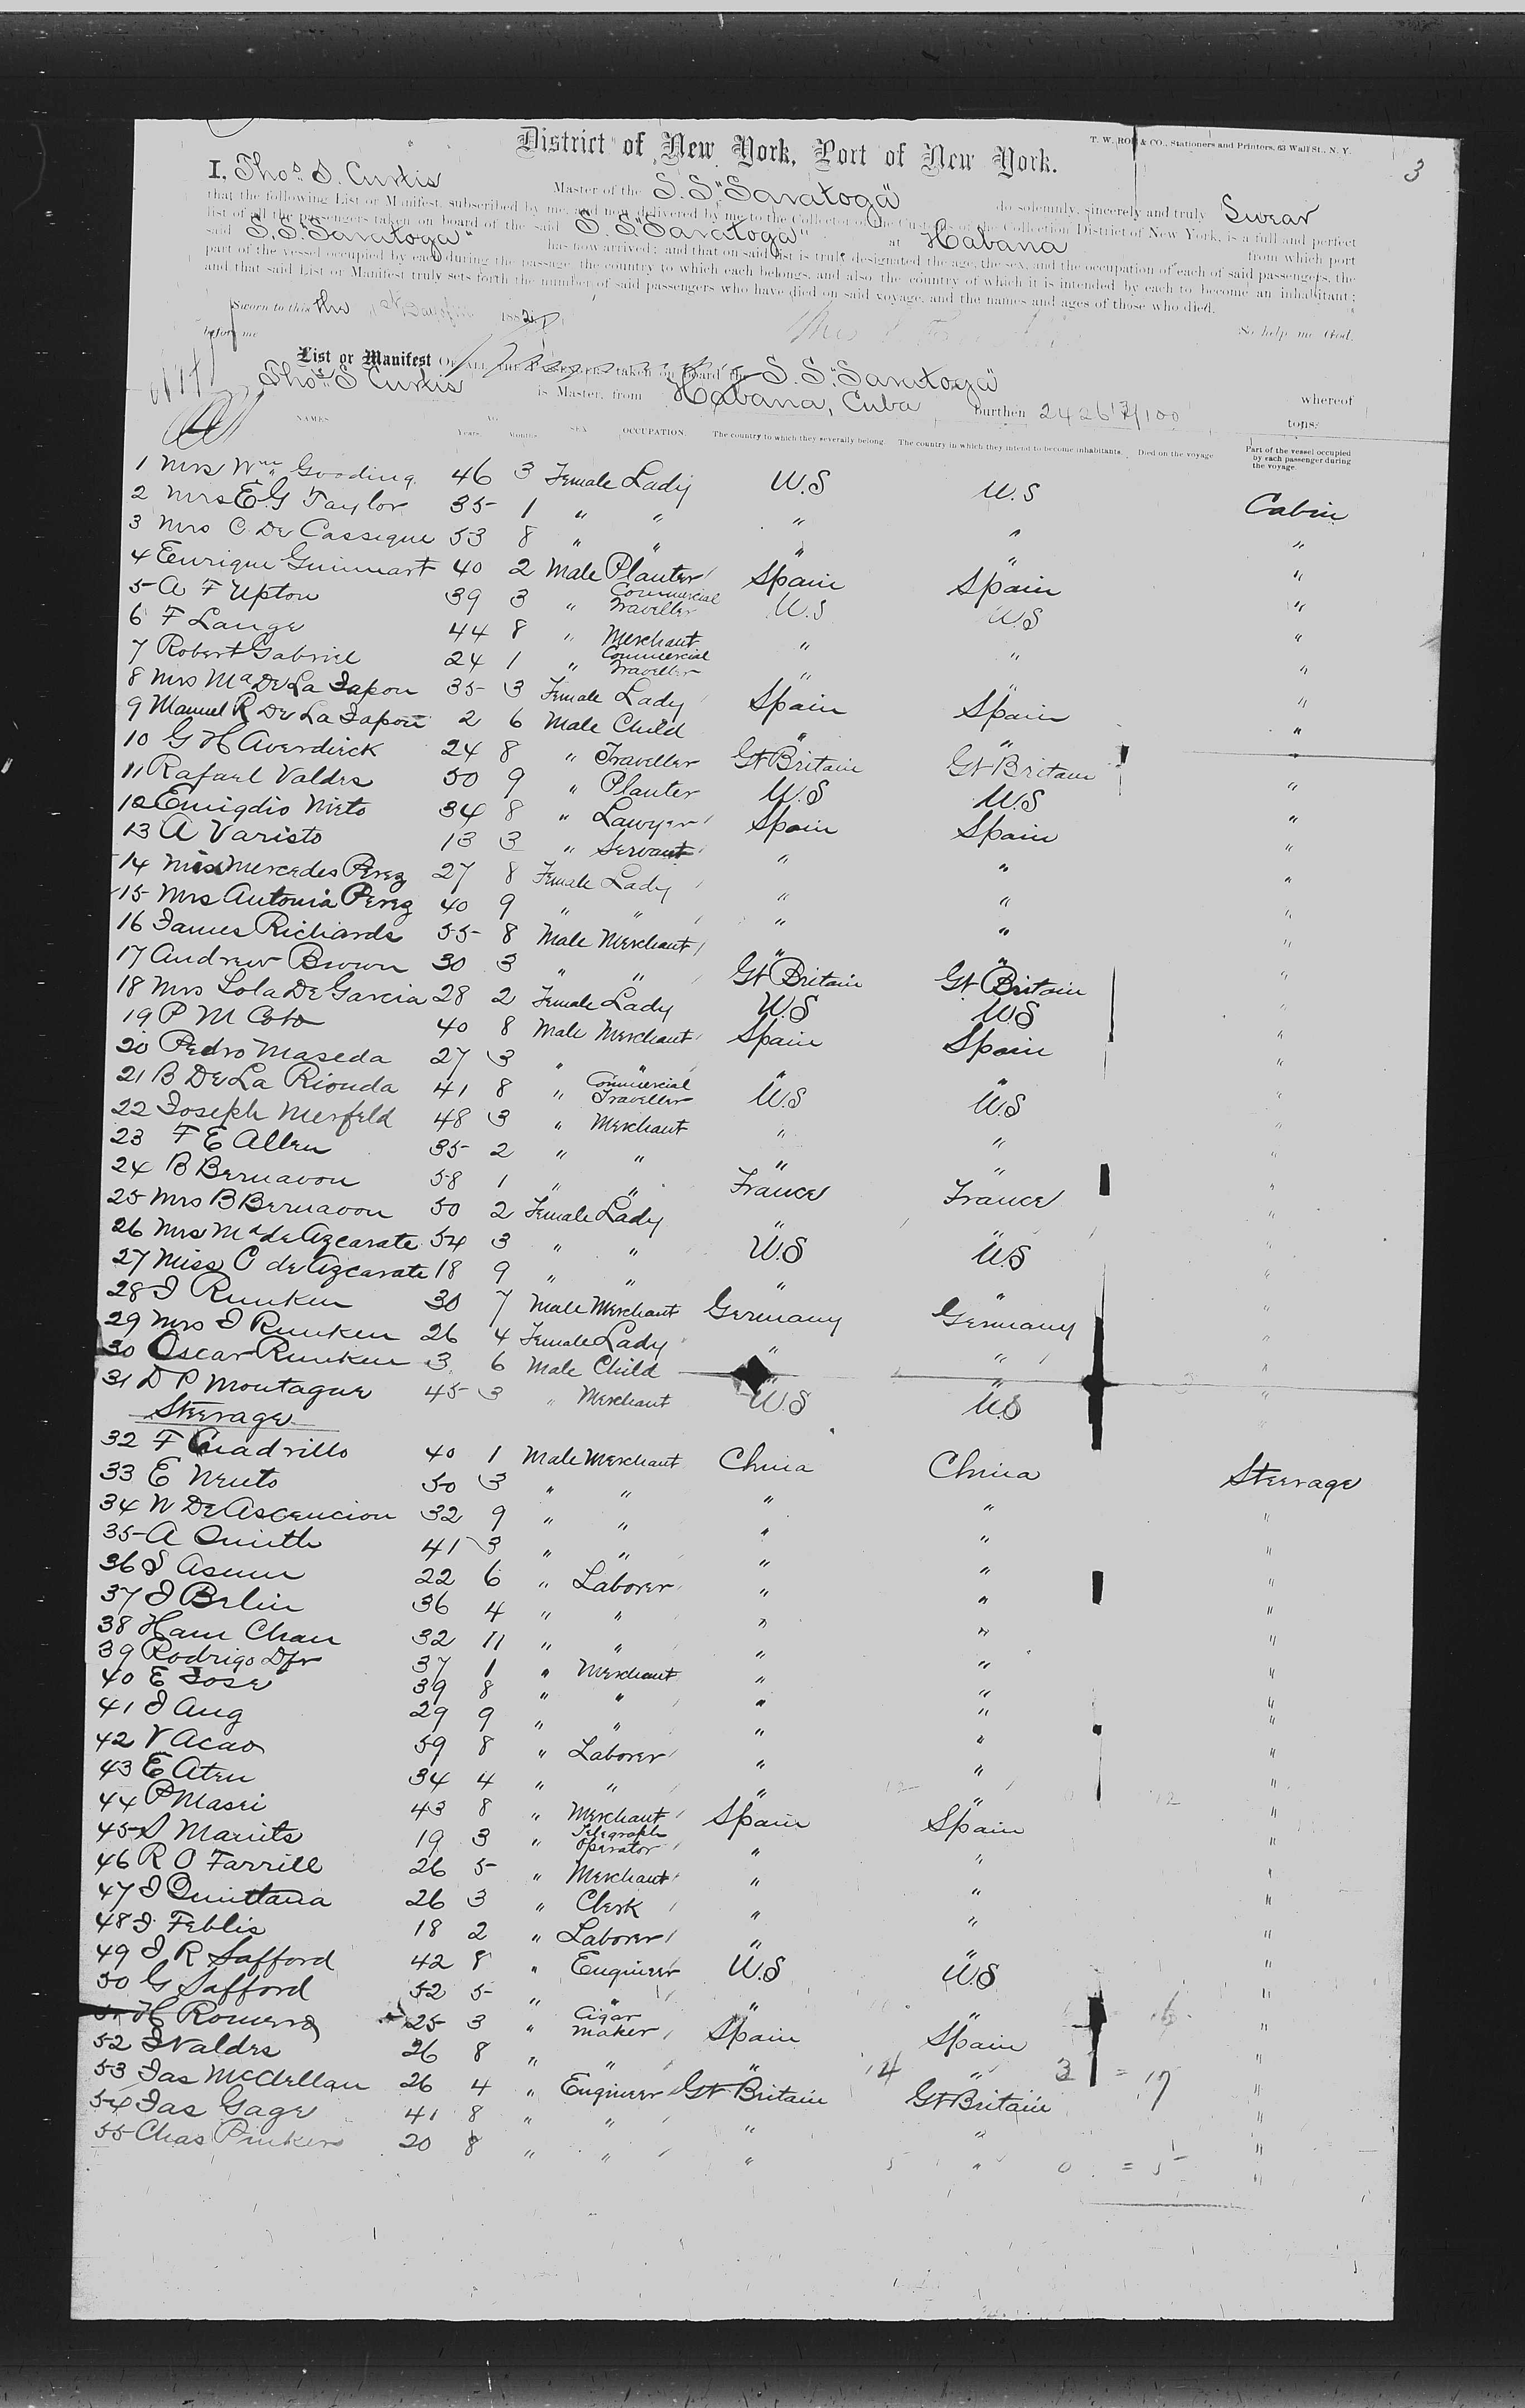 District of New York, Port of New York.
3
I, Thos. S. Curtis Master of the S.S. "Saratoga" do solemnly, sincerely and truly Swear
that the following List or Manifest, subscribed by me, and now delivered by me to the Collector of the Customs of the Collection District of New York, is a full and perfect
list of all the passengers taken on board of the said S.S. "Saratoga" at Habana from which port
said S.S. "Saratoga" has now arrived; and that on said list is truly designated the age, the sex, and the occupation of each of said passengers, the
part of the vessel occupied by each during the passage, the country to which each belongs, and also the country of which it is intended by each to become an inhabitant;
and that said List or Manifest truly sets forth the number of said passengers who have died on said voyage, and the names and ages of those who died.
Sworn to this 188
before me So help me God.
List or Manifest OF ALL THE PASSENGERS taken on board the S.S. "Saratoga" whereof
Thos. S Curtis is Master, from Habana, Cuba burthen tons.
NAMES Years. Months SEX OCCUPATION. The country to which they severally belong. The country in which they intend to become inhabitants. Died on the voyage Part of the vessel occupied by each passenger during the voyage.
1 Mrs Wm. Gooding 46 3 Female Lady U.S U.S Cabin
2 Mrs E.G Taylor 35 1 " " " " "
3 Mrs C. De Cassique 53 8 " " " " "
4 Enrique Guimart 40 2 Male Planter Spain Spain "
5 A F Upton 39 3 " Commercial Traveller U.S U.S "
6 F Lange 44 8 " Merchant " " "
7 Robert Gabriel 24 1 " Commercial Traveller " " "
8 Mrs Ma De La 35 3 Female Lady Spain Spain "
9 Manuel R De La 2 6 Male Child " " "
10 G H Averdieck 24 8 " Traveller Gt Britain Gt Britain "
11 Rafael Valdes 50 9 " Planter U.S U.S "
12 Emigdio Nieto 34 8 " Lawyer Spain Spain "
13 A Varisto 13 3 " Servant " " "
14 Miss Mercedes Perez 27 8 Female Lady " " "
15 Mrs Antonia Perez 40 9 " " " " "
16 James Richards 55 8 Male Merchant " " "
17 Andrew Brown 30 3 " " Gt Britain Gt Britain "
18 Mrs Lola De Garcia 28 2 Female Lady U.S U.S "
19 P M Coto 40 8 Male Merchant Spain Spain "
20 Pedro Maseda 27 3 " " " " "
21 B De La Rionda 41 8 " Commercial Traveller U.S U.S "
22 Joseph Merfeld 48 3 " Merchant " " "
23 F E Allen 35 2 " " " " "
24 B Bernavon 58 1 " " France France "
25 Mrs B Bernavon 50 2 Female Lady " " "
26 Mrs Ma de Azcarate 54 3 " " U.S U.S "
27 Miss C de Azcarate 18 9 " " " " "
28 J Runken 30 7 Male Merchant Germany Germany "
29 Mrs J Runken 26 4 Female Lady " " "
30 Oscar Runken 3 6 Male Child " " "
31 D P Montague 45 3 " Merchant U.S U.S "
Steerage
32 F Cuadrillo 40 1 Male Merchant China China Steerage
33 E 50 3 " " " " "
34 N De Ascencion 32 9 " " " " "
35 A 41 3 " " " " "
36 S 22 6 " Laborer " " "
37 J Belin 36 4 " " " " "
38 Ham Chan 32 11 " " " " "
39 Rodrigo 37 1 " Merchant " " "
40 E Jose 39 8 " " " " "
41 J Aug 29 9 " " " " "
42 V Acao 59 8 " Laborer " " "
43 E Aten 34 4 " " " " "
44 P Masri 43 8 " Merchant Spain Spain "
45 19 3 " Telegraph Operator " " "
46 R O Farrill 26 5 " Merchant " " "
47 J Quintana 26 3 " Clerk " " "
48 J. Feblis 18 2 " Laborer " " "
49 J R Safford 42 8 " Engineer U.S U.S "
50 G Safford 52 5 " " " " "
51 H Romero 25 3 " Cigar maker Spain Spain "
52 J Valdes 26 8 " " " " "
53 Jas McClellan 26 4 " Engineer Gt Britain Gt Britain "
54 Jas Gage 41 8 " " " " "
55 Chas 20 8 " " " " "